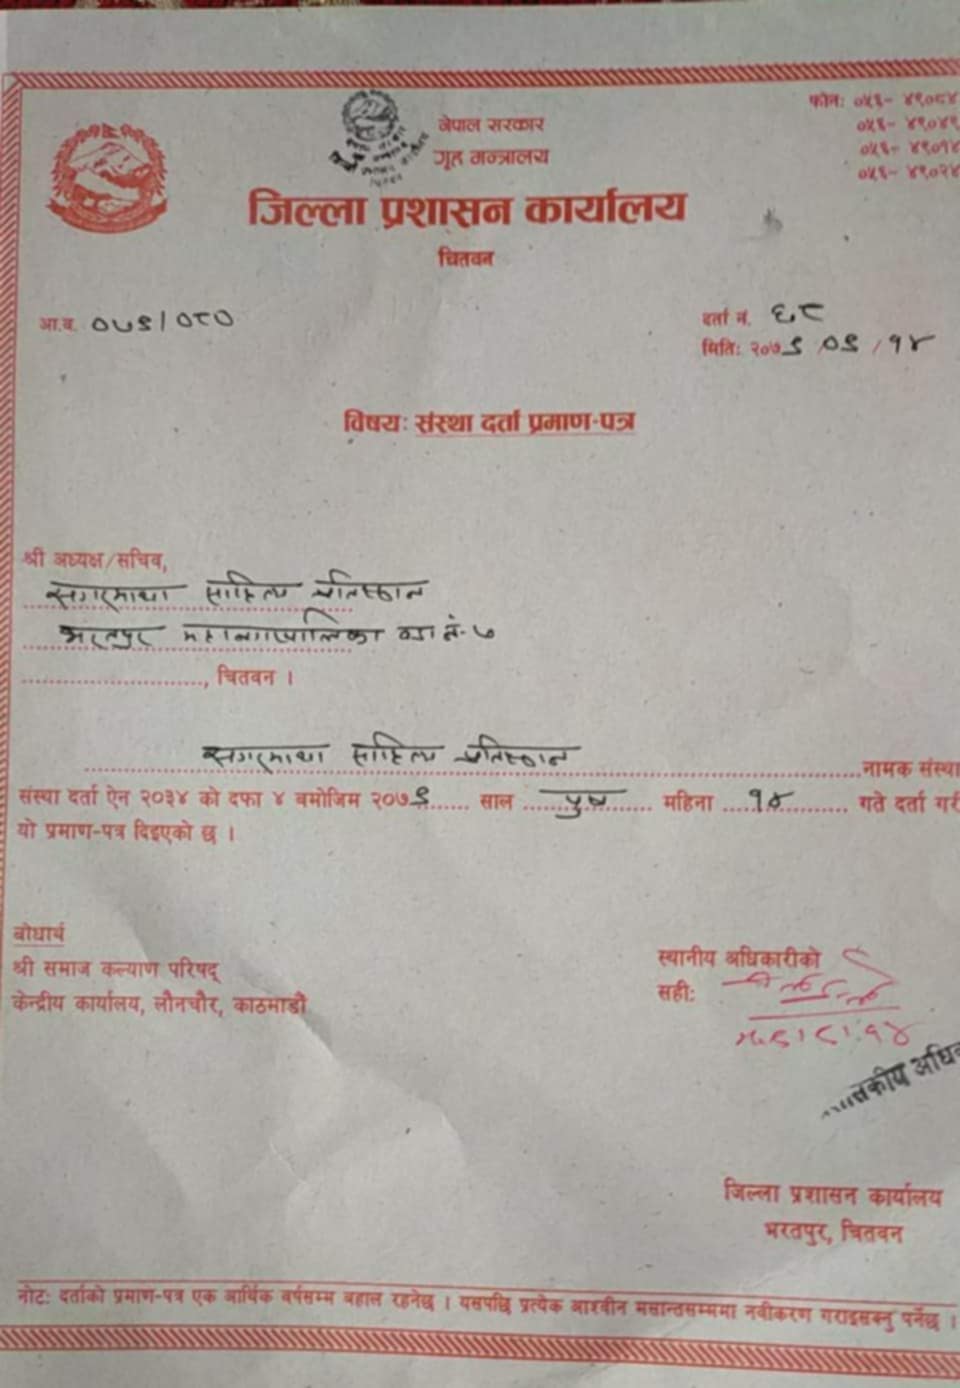 नेपाल सरकार
गृह मन्त्रालय
जिल्ला प्रशासन कार्यालय
चितवन
फोनः ०५६- ४९०८४
०५६- ४९०४९
०५६- ४९०१४
०५६- ४९०२४
आ.व. ०७९/०८०
दर्ता नं. ६८
मितिः २०७९/०९/१४
विषयः संस्था दर्ता प्रमाण-पत्र
श्री अध्यक्ष/सचिव,
सगरमाथा साहित्य प्रतिष्ठान
भरतपुर महानगरपालिका वडा नं. ७
, चितवन ।
सगरमाथा साहित्य प्रतिष्ठान नामक संस्था
संस्था दर्ता ऐन २०३४ को दफा ४ बमोजिम २०७९ साल पुष महिना १४ गते दर्ता गरी
यो प्रमाण-पत्र दिइएको छ ।
बोधार्थ
श्री समाज कल्याण परिषद्
केन्द्रीय कार्यालय, लैनचौर, काठमाडौं
स्थानीय अधिकारीको
सहीः
जिल्ला प्रशासन कार्यालय
भरतपुर, चितवन
नोटः दर्ताको प्रमाण-पत्र एक आर्थिक वर्षसम्म बहाल रहनेछ । यसपछि प्रत्येक आश्वीन मसान्तसम्ममा नवीकरण गराइसक्नु पर्नेछ ।